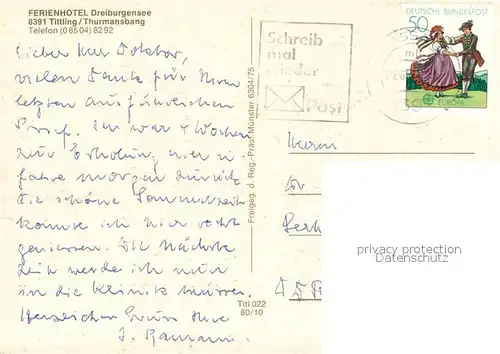 FERIENHOTEL Dreiburgensee
8391 Tittling / Thurmansbang
Telefon (0 85 04) 82 92
Lieber Herr Doktor,
vielen Dank für Ihren
letzten ausführlichen
Brief. Ich war 4 Wochen
zur Erholung hier
fahre morgen zurück
Die schöne
konnte ich hier
geniessen. Die nächste
Zeit werde ich nun
in die Klinik müssen.
Herzlichen Gruss Ihre
Titl 022
80/10
Freigeg. d. Reg.-Präs. Münster 6304/75
Schreib
mal
wieder
Post
DEUTSCHE BUNDESPOST
50
EUROPA
Herrn
Dr.
privacy protection
Datenschutz